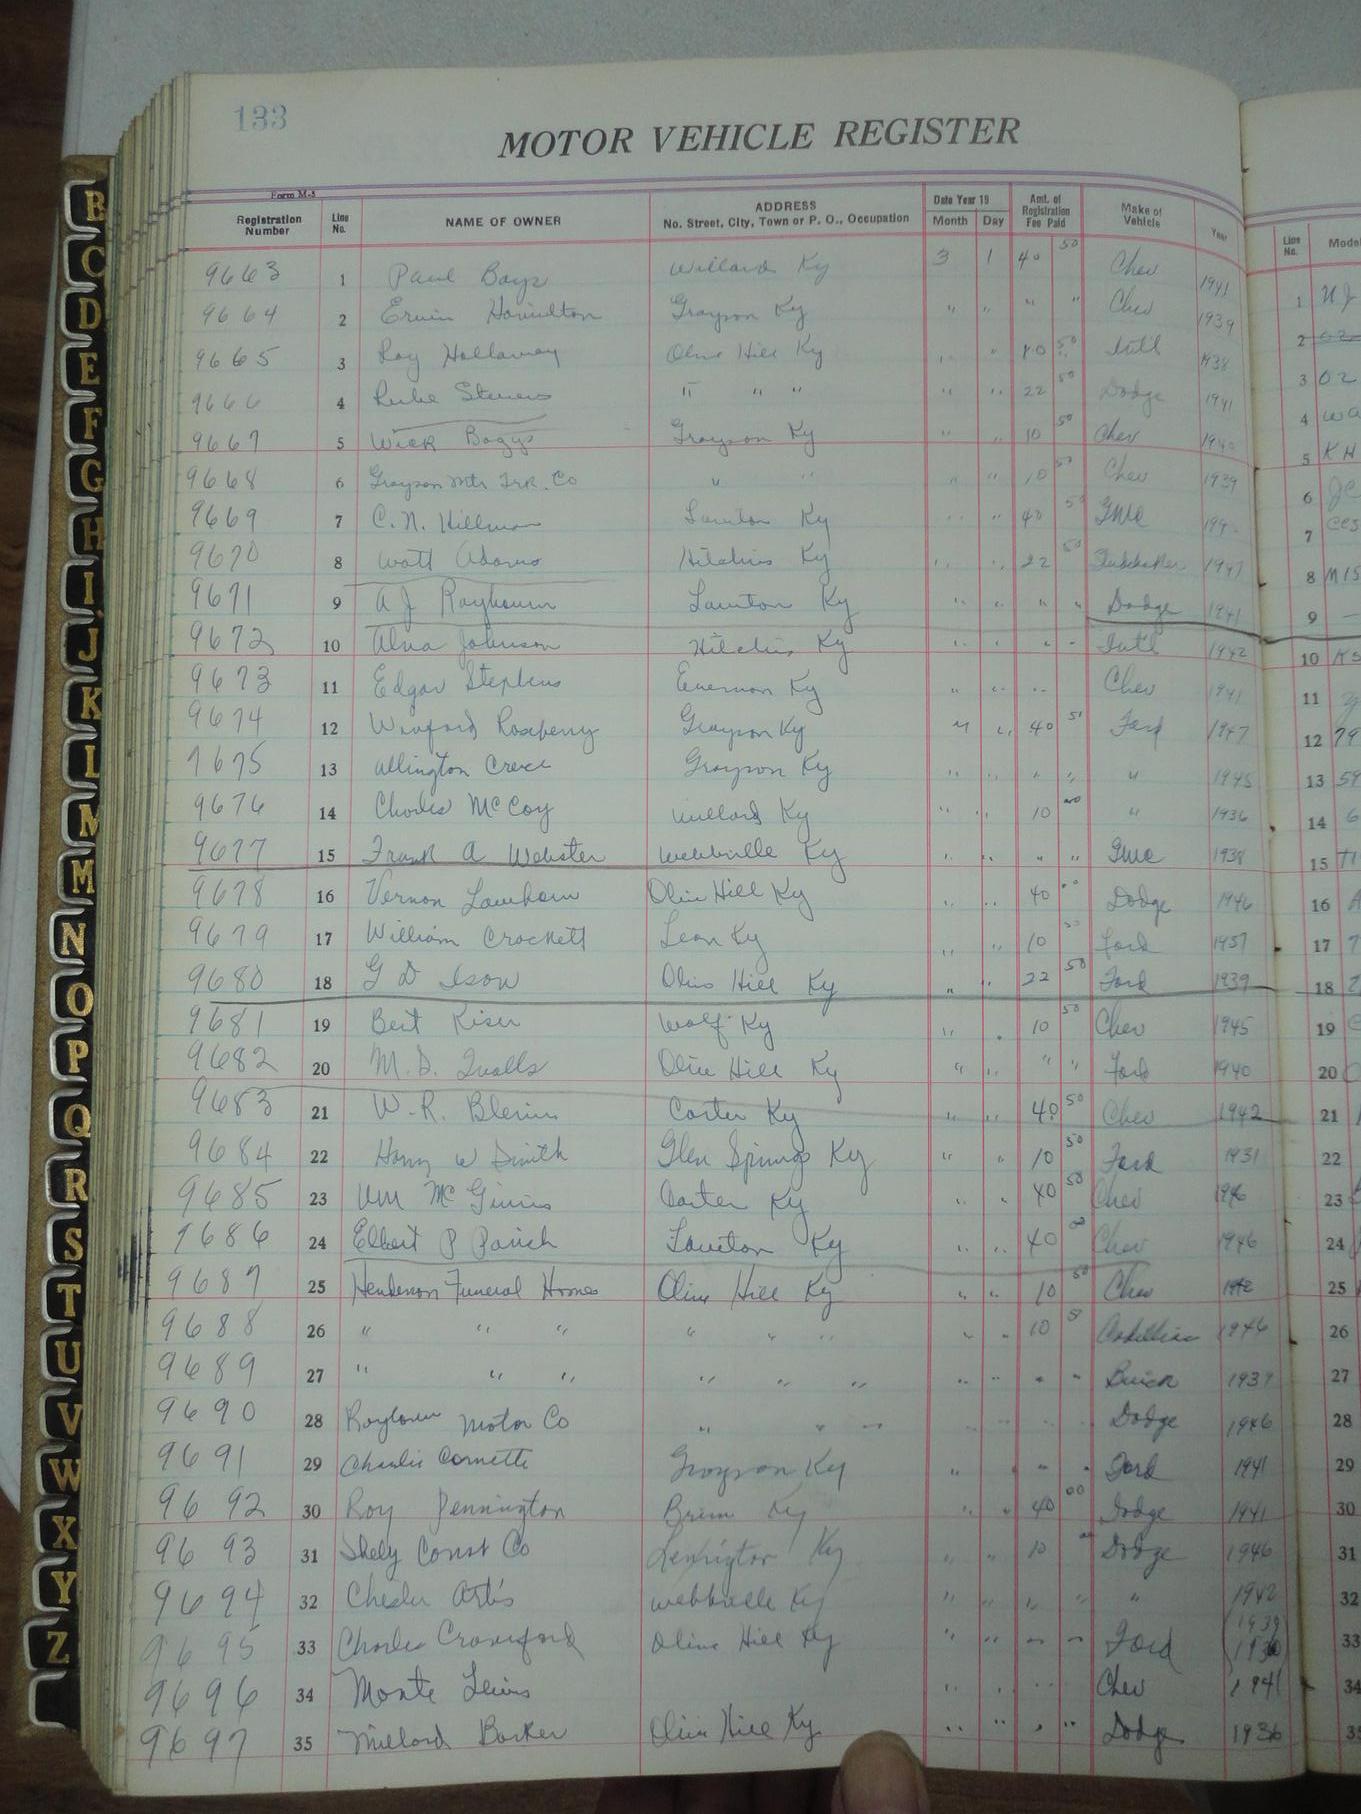 133
MOTOR VEHICLE REGISTER
Form M-5
Registration Number Line No. NAME OF OWNER ADDRESS No. Street, City, Town or P. O., Occupation Date Year 19 Month Day Amt. of Registration Fee Paid Make of Vehicle Year Line No. Model
9663 1 Paul Bays Willard Ky 3 1 40 50 Chev 1941 1
9664 2 Erwin Hamilton Grayson Ky " " " " Chev 1939 2
9665 3 Roy Hollaway Olive Hill Ky " " 50 Intl 1938 3
9666 4 Rube Stevens " " " " " 22 50 Dodge 1941 4
9667 5 Wick Boggs Grayson Ky " " 10 50 Chev 1940 5 KH
9668 6 Grayson Mtr Trk. Co " " " " 10 50 Chev 1939 6
9669 7 C. N. Hillman Lawton Ky " " 40 50 GMC 7
9670 8 Watt Adams Hitchins Ky " " 22 50 Studebaker 1947 8 MIS
9671 9 A J Raybourn Lawton Ky " " " " Dodge 1941 9 —
9672 10 Alva Johnson Hitchins Ky " " " " Int'l 1942 10
9673 11 Edgar Stephens Enerson Ky " " " Chev 1941 11
9674 12 Winford Rosberry Grayson Ky " " 40 Ford 1947 12 79
9675 13 Allington Grayson Ky " " " " " 1945 13 59
9676 14 Charles McCoy Willard Ky " " 10 " 1936 14 6
9677 15 Frank A Webster Webbville Ky " " " " GMC 1938 15
9678 16 Vernon Lawhorn Olive Hill Ky " " 40 Dodge 1946 16
9679 17 William Crockett Leon Ky " " 10 50 Ford 1937 17 7
9680 18 G D Ison Olive Hill Ky " " 22 50 Ford 1939 18
9681 19 Bert Kiser Wolf Ky " " 10 50 Chev 1945 19
9682 20 M. D. Qualls Olive Hill Ky " " " " Ford 1940 20
9683 21 W. R. Blevins Carter Ky " " 40 50 Chev 1942 21
9684 22 Harry W Smith Glen Springs Ky " " 10 50 Ford 1931 22
9685 23 Wm McGinnis Carter Ky " " 40 50 Chev 1946 23
9686 24 Elbert P Parish Lawton Ky " " 40 Chev 1946 24
9687 25 Henderson Funeral Homes Olive Hill Ky " " 10 50 Chev 1942 25
9688 26 " " " " " " " " 10 Cadillac 1946 26
9689 27 " " " " " " " " " " Buick 1937 27
9690 28 Raybourn Motor Co " " " " " " " Dodge 1946 28
9691 29 Charlie Cornette Grayson Ky " " " " Ford 1941 29
9692 30 Roy Pennington Bruin Ky " " 40 00 Dodge 1941 30
9693 31 Shely Const Co Lexington Ky " " 10 Dodge 1946 31
9694 32 Chester Artis Webbville Ky " " " " " 1942 32
9695 33 Charles Crawford Olive Hill Ky " " " " Ford 1939 1930 33
9696 34 Monte Lewis " " " Chev 1941 34
9697 35 Millard Barker Olive Hill Ky " " " " Dodge 1936 35
B
C
D
E
F
G
H
I
J
K
L
M
M
N
O
P
Q
R
S
T
U
V
W
X
Y
Z